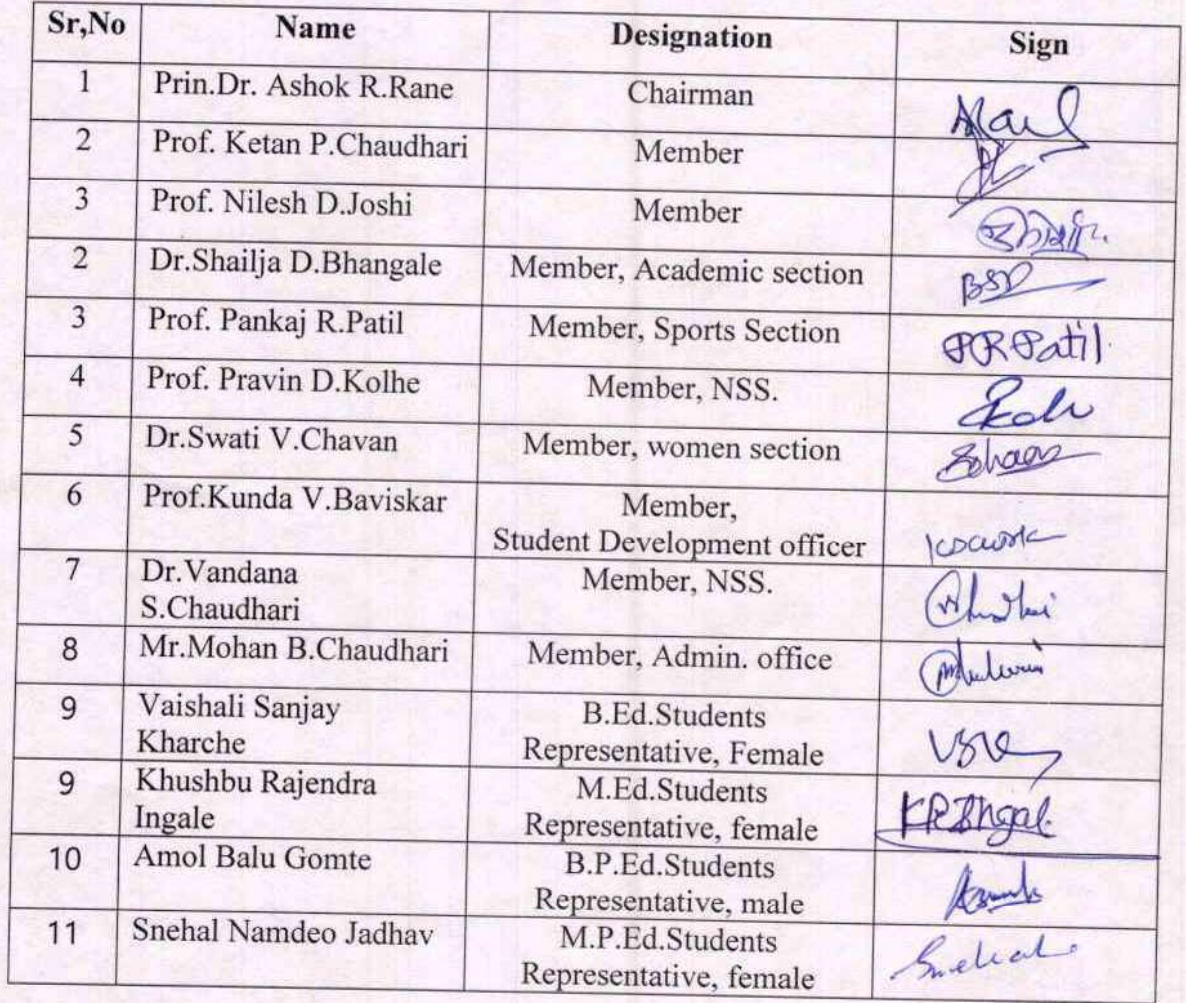 Sr,No Name Designation Sign
1 Prin.Dr. Ashok R.Rane Chairman
2 Prof. Ketan P.Chaudhari Member
3 Prof. Nilesh D.Joshi Member
2 Dr.Shailja D.Bhangale Member, Academic section BSD
3 Prof. Pankaj R.Patil Member, Sports Section PRPatil
4 Prof. Pravin D.Kolhe Member, NSS.
5 Dr.Swati V.Chavan Member, women section
6 Prof.Kunda V.Baviskar Member,
Student Development officer
7 Dr.Vandana Member, NSS.
S.Chaudhari
8 Mr.Mohan B.Chaudhari Member, Admin. office
9 Vaishali Sanjay B.Ed.Students
Kharche Representative, Female
9 Khushbu Rajendra M.Ed.Students
Ingale Representative, female
10 Amol Balu Gomte B.P.Ed.Students
Representative, male
11 Snehal Namdeo Jadhav M.P.Ed.Students
Representative, female